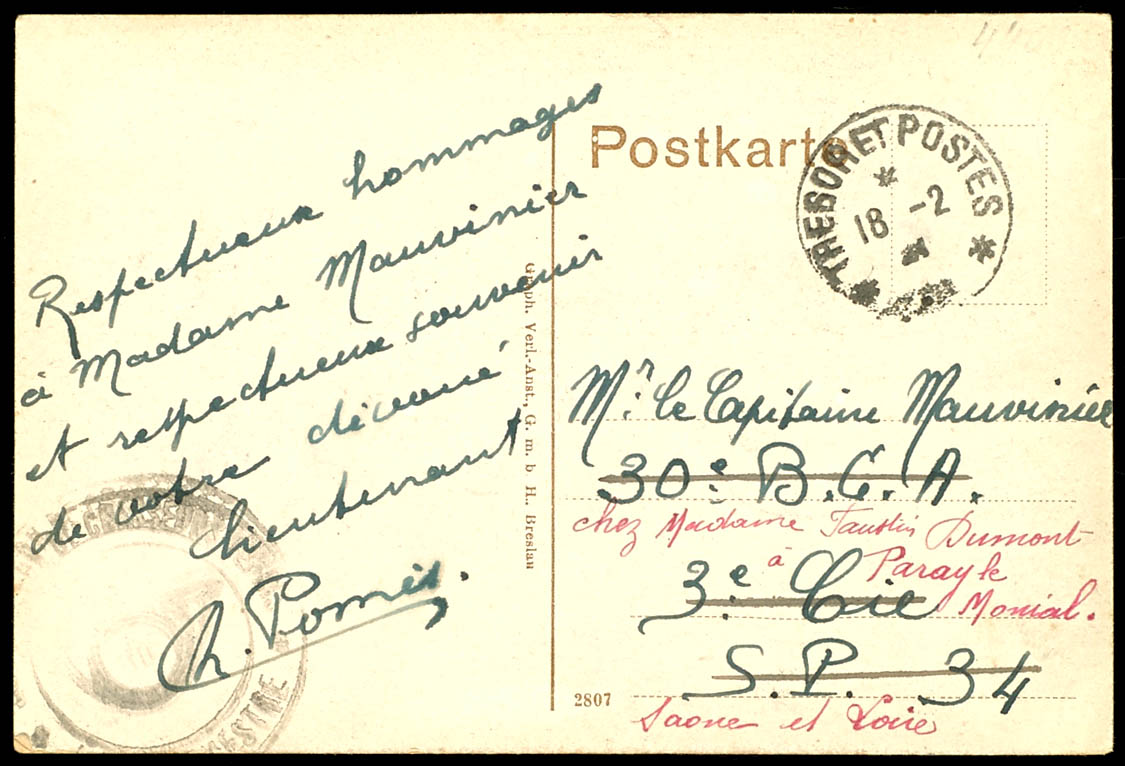 Respectueux hommages
à Madame Mauvinier
et respectueux souvenir
de votre dévoué
lieutenant
Ch. Pomiès.
Graph. Verl.-Anst., G. m. b H., Breslau
Postkarte
TRESOR ET POSTES
18 -2
Mr. le Capitaine Mauvinier
30e B.C.A.
chez Madame Faustin Dumont
à Paray le
3.e Cie
Monial.
S.P. 34
2807
Saone et Loire